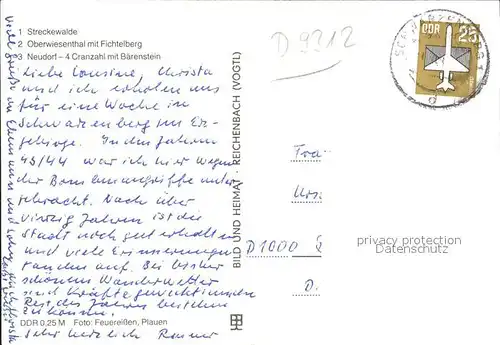 1 Streckewalde
2 Oberwiesenthal mit Fichtelberg
3 Neudorf – 4 Cranzahl mit Bärenstein
Liebe Cousine, Christa
und ich erholen uns
für eine Woche in
Schwarzenberg im Erz-
gebirge. In den Jahren
43/44 war ich hier wegen
der Bombenangriffe unter-
gebracht. Nach über
vierzig Jahren ist die
Stadt noch gut erhalten
und viele Erinnerungen
tauchen auf. Bei bisher
schönem Wanderwetter
sind Kräfte gewachsen den
Rest des Jahres bestehen
zu können.
Sehr herzlich Rainer
DDR 0,25 M Foto: Feuereißen, Plauen
Viele Grüße an
BILD UND HEIMAT REICHENBACH (VOGTL)
D 9312
DDR 25
SCHWARZENBERG 1
Frau
D 1000
D.
privacy protection
Datenschutz